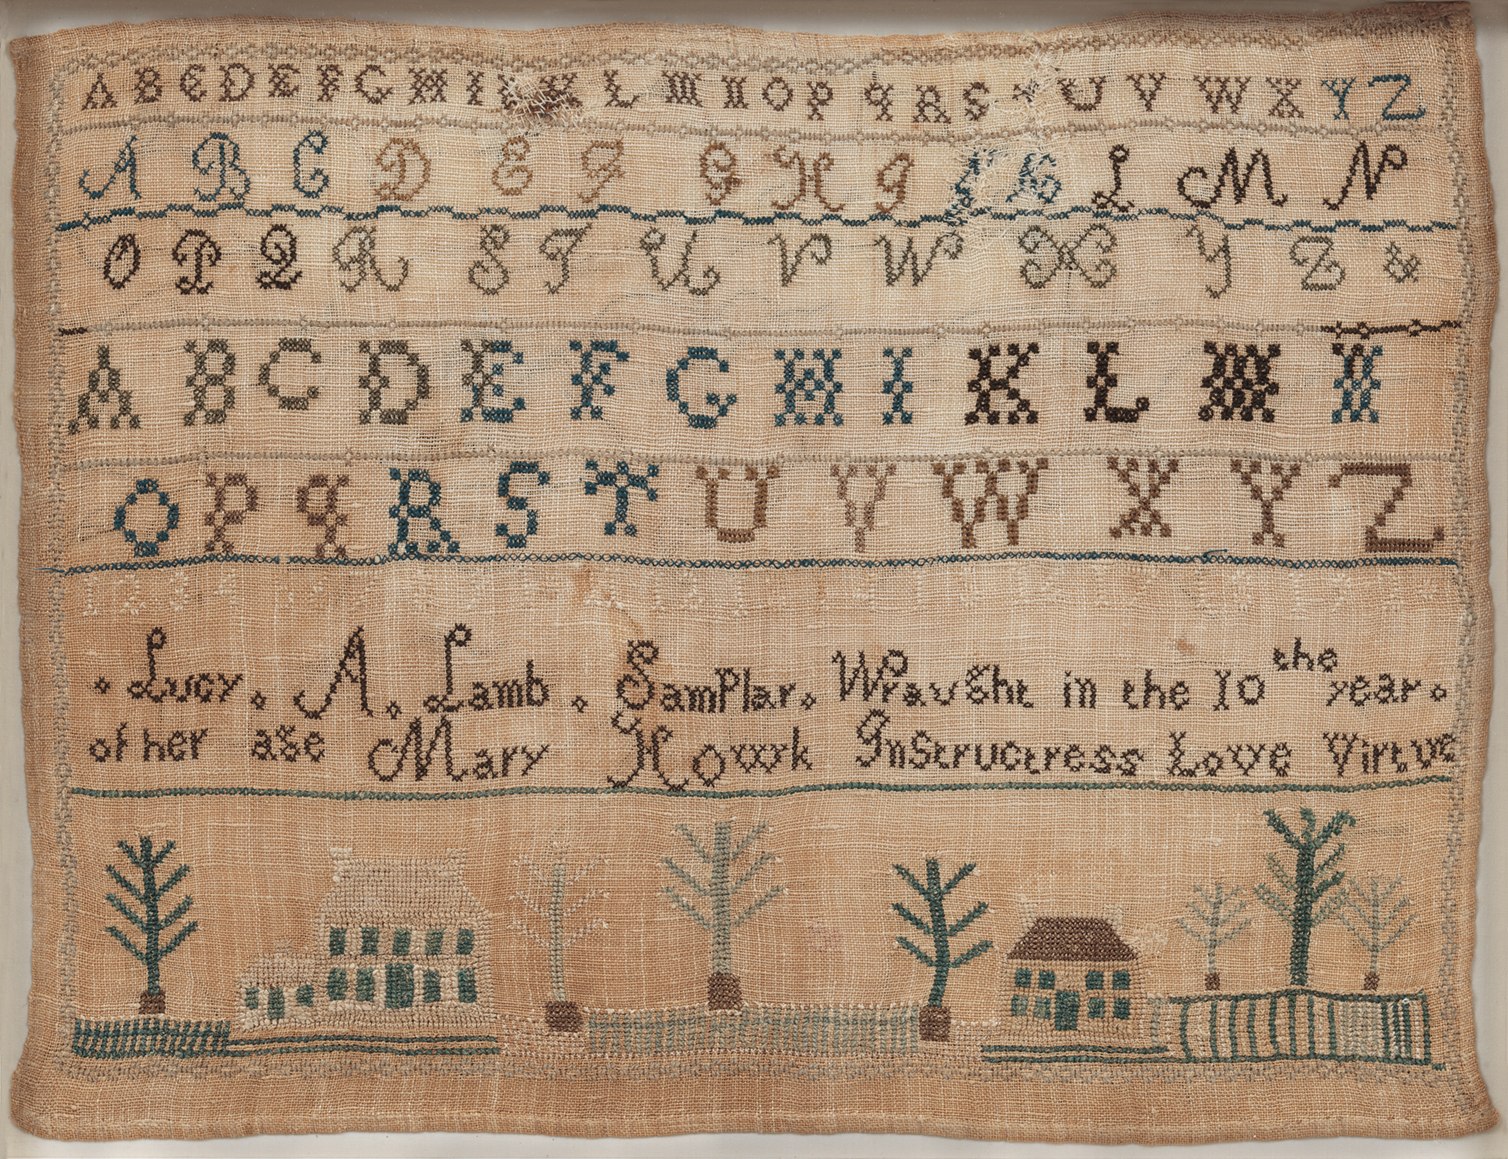 A B C D E F G H I K L M N O P q R S U V W X Y Z
A B C D E F G H I K L M N
O P Q R S T U V W X Y Z &
A B C D E F G H I K L M N
O P q R S T U V W X Y Z
1 2 3 4
. Lucy . A . Lamb . SamPlar. Wraught in the 10the year.
of her age Mary Howk Instructress Love Virtue